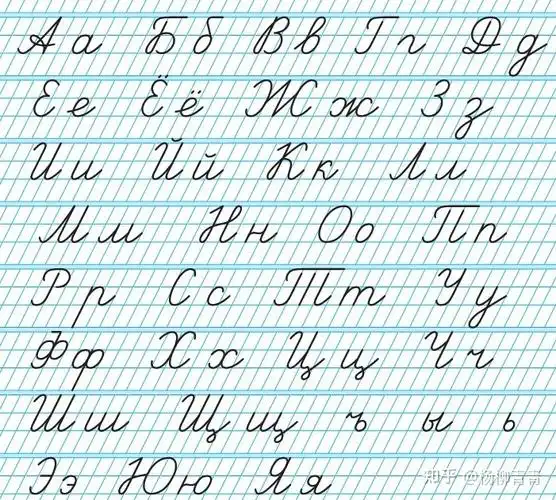 Аа Бб Вв Гг Дд
Ее Ёё Жж Зз
Ии Йй Кк Лл
Мм Нн Оо Пп
Рр Сс Тт Уу
Фф Хх Цц Чч
Шш Щщ ъ ы ь
Ээ Юю Яя
知乎 @杨柳青青